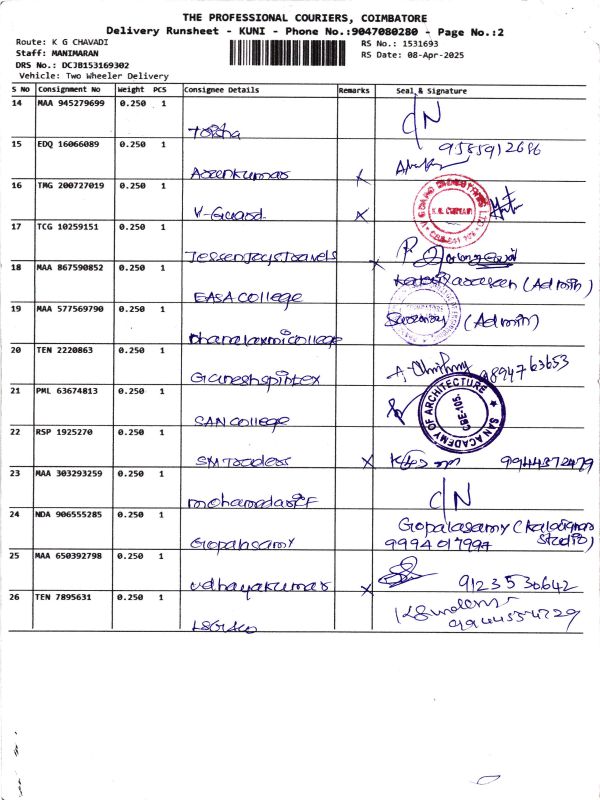 THE PROFESSIONAL COURIERS, COIMBATORE
Delivery Runsheet - KUNI - Phone No.:9047080280 - Page No.:2
Route: K G CHAVADI
RS No.: 1531693
Staff: MANIMARAN
RS Date: 08-Apr-2025
DRS No.: DCJB153169302
Vehicle: Two Wheeler Delivery
S No Consignment No Weight PCS Consignee Details Remarks Seal & Signature
14 MAA 945279699 0.250 1
C/N
15 EDQ 16066089 0.250 1 9585912686
Arunkumar x
16 TMG 200727019 0.250 1
V-Guard x
17 TCG 10259151 0.250 1
x
18 MAA 867590852 0.250 1 (Admin)
EASA COllege
19 MAA 577569790 0.250 1 (Admin)
Dhanalaxmi college
20 TEN 2220863 0.250 1 9894763653
Ganesh spintex
21 PML 63674813 0.250 1 SAN ACADEMY OF ARCHITECTURE
CBE-105.
SAN COllege
22 RSP 1925270 0.250 1 9944372479
SM Traders x
23 MAA 303293259 0.250 1
C/N
24 NDA 906555285 0.250 1 Gopalasamy (Kalaignar
Studio)
9994017997
Gopalsamy
25 MAA 650392798 0.250 1 9123530642
Udhayakumar x
26 TEN 7895631 0.250 1